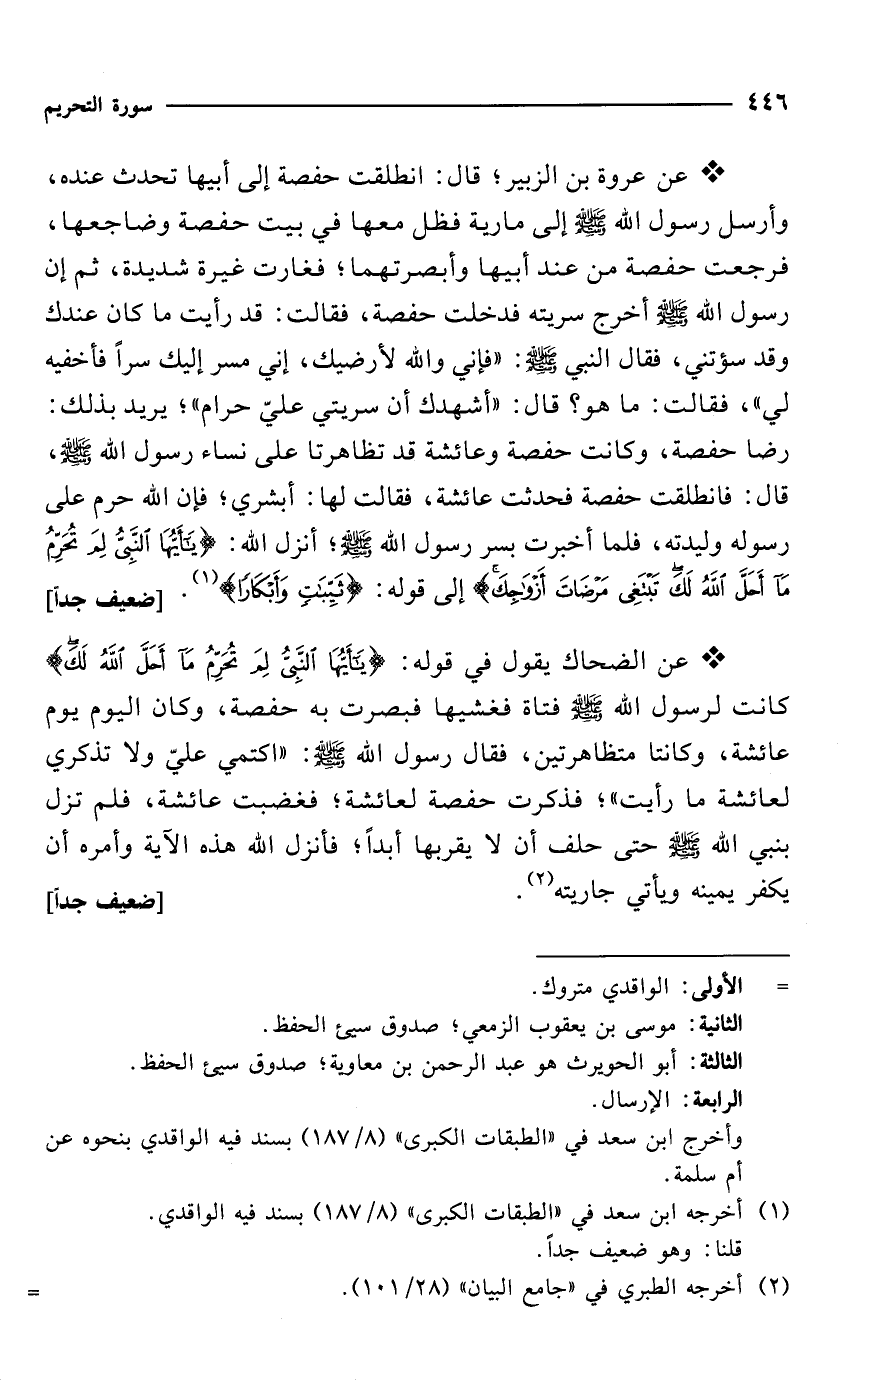 ٤٤٦ سورة التحريم
❖ عن عروة بن الزبير؛ قال: انطلقت حفصة إلى أبيها تحدث عنده،
وأرسل رسول الله ﷺ إلى مارية فظل معها في بيت حفصة وضاجعها،
فرجعت حفصة من عند أبيها وأبصرتهما؛ فغارت غيرة شديدة، ثم إن
رسول الله ﷺ أخرج سريته فدخلت حفصة، فقالت: قد رأيت ما كان عندك
وقد سؤتني، فقال النبي ﷺ: «فإني والله لأرضيك، إني مسر إليك سراً فأخفيه
لي»، فقالت: ما هو؟ قال: «أشهدك أن سريتي عليّ حرام»؛ يريد بذلك:
رضا حفصة، وكانت حفصة وعائشة قد تظاهرتا على نساء رسول الله ﷺ،
قال: فانطلقت حفصة فحدثت عائشة، فقالت لها: أبشري؛ فإن الله حرم على
رسوله وليدته، فلما أخبرت بسر رسول الله ﷺ؛ أنزل الله: ﴿يَٰٓأَيُّهَا ٱلنَّبِيُّ لِمَ تُحَرِّمُ
مَآ أَحَلَّ ٱللَّهُ لَكَۖ تَبْتَغِى مَرْضَاتَ أَزْوَٰجِكَۚ﴾ إلى قوله: ﴿ثَيِّبَٰتٍ وَأَبْكَارًا﴾(١). [ضعيف جداً]
❖ عن الضحاك يقول في قوله: ﴿يَٰٓأَيُّهَا ٱلنَّبِيُّ لِمَ تُحَرِّمُ مَآ أَحَلَّ ٱللَّهُ لَكَۖ﴾
كانت لرسول الله ﷺ فتاة فغشيها فبصرت به حفصة، وكان اليوم يوم
عائشة، وكانتا متظاهرتين، فقال رسول الله ﷺ: «اكتمي عليّ ولا تذكري
لعائشة ما رأيت»؛ فذكرت حفصة لعائشة؛ فغضبت عائشة، فلم تزل
بنبي الله ﷺ حتى حلف أن لا يقربها أبداً؛ فأنزل الله هذه الآية وأمره أن
يكفر يمينه ويأتي جاريته(٢). [ضعيف جداً]
= الأولى: الواقدي متروك.
الثانية: موسى بن يعقوب الزمعي؛ صدوق سيئ الحفظ.
الثالثة: أبو الحويرث هو عبد الرحمن بن معاوية؛ صدوق سيئ الحفظ.
الرابعة: الإرسال.
وأخرج ابن سعد في «الطبقات الكبرى» (٨/ ١٨٧) بسند فيه الواقدي بنحوه عن
أم سلمة.
(١) أخرجه ابن سعد في «الطبقات الكبرى» (٨/ ١٨٧) بسند فيه الواقدي.
قلنا: وهو ضعيف جداً.
(٢) أخرجه الطبري في «جامع البيان» (٢٨/ ١٠١). =